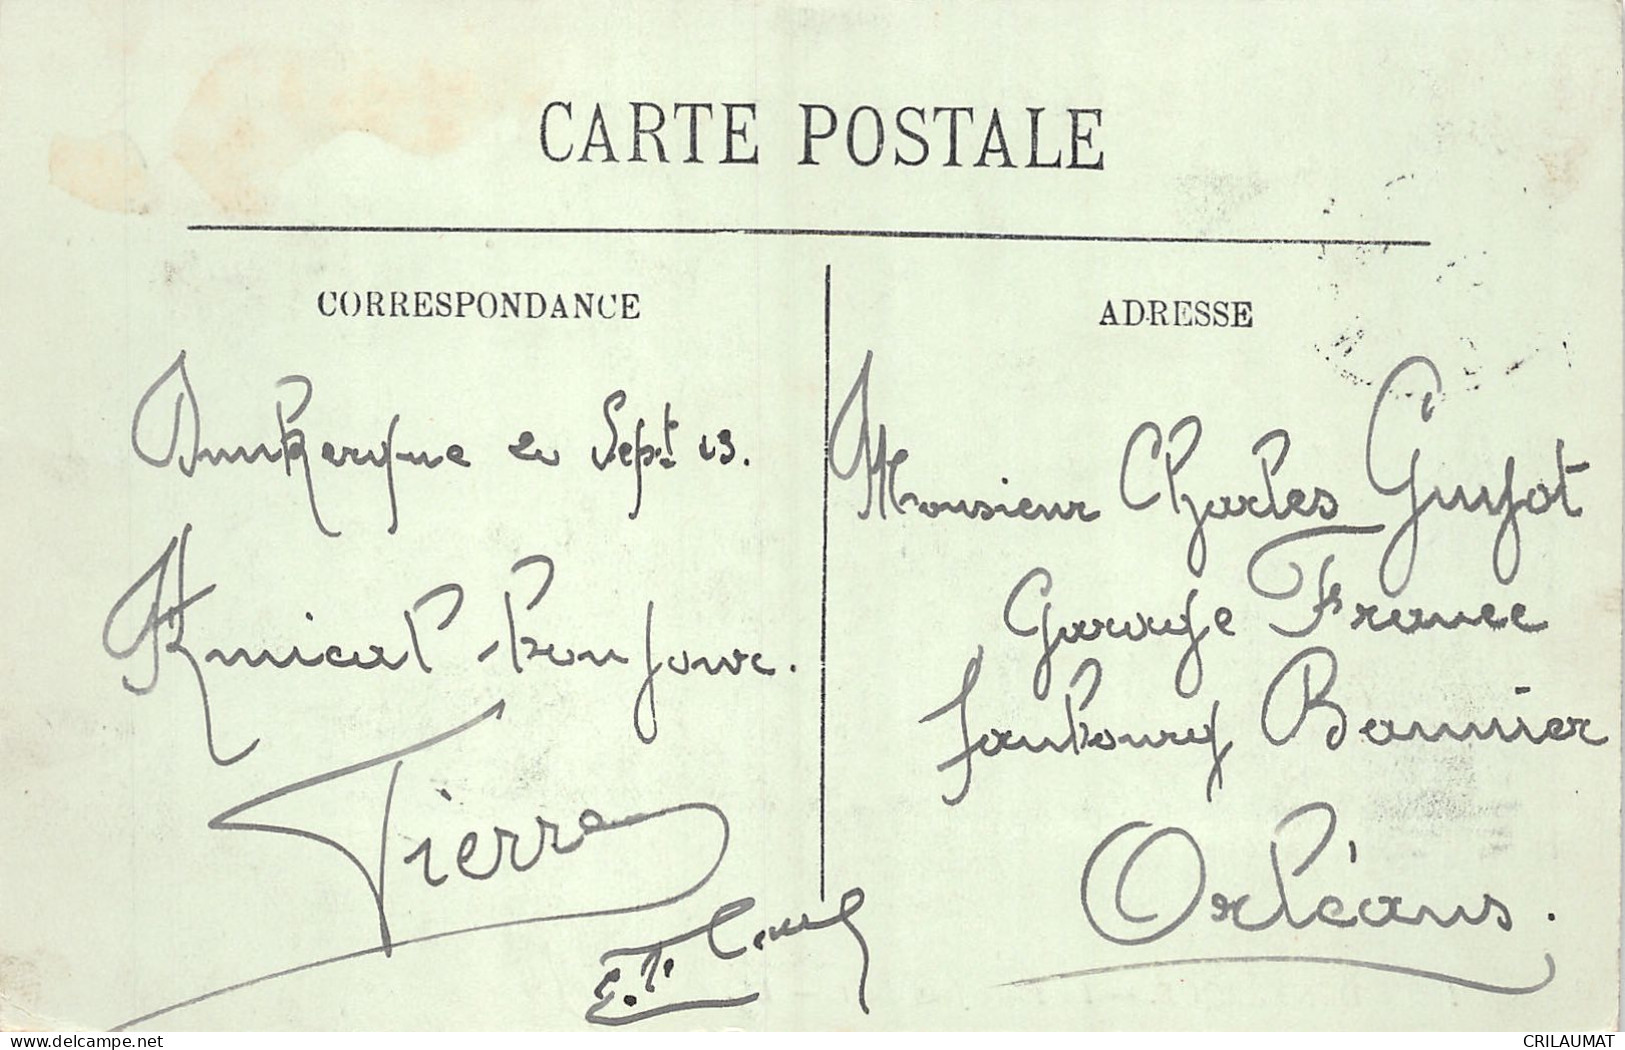 CARTE POSTALE
CORRESPONDANCE
Dunkerque le Sept 13.
Amical Bonjour.
Pierre
ADRESSE
Monsieur Charles Guyot
Garage France
Faubourg Bannier
Orléans.
delcampe.net
CRILAUMAT